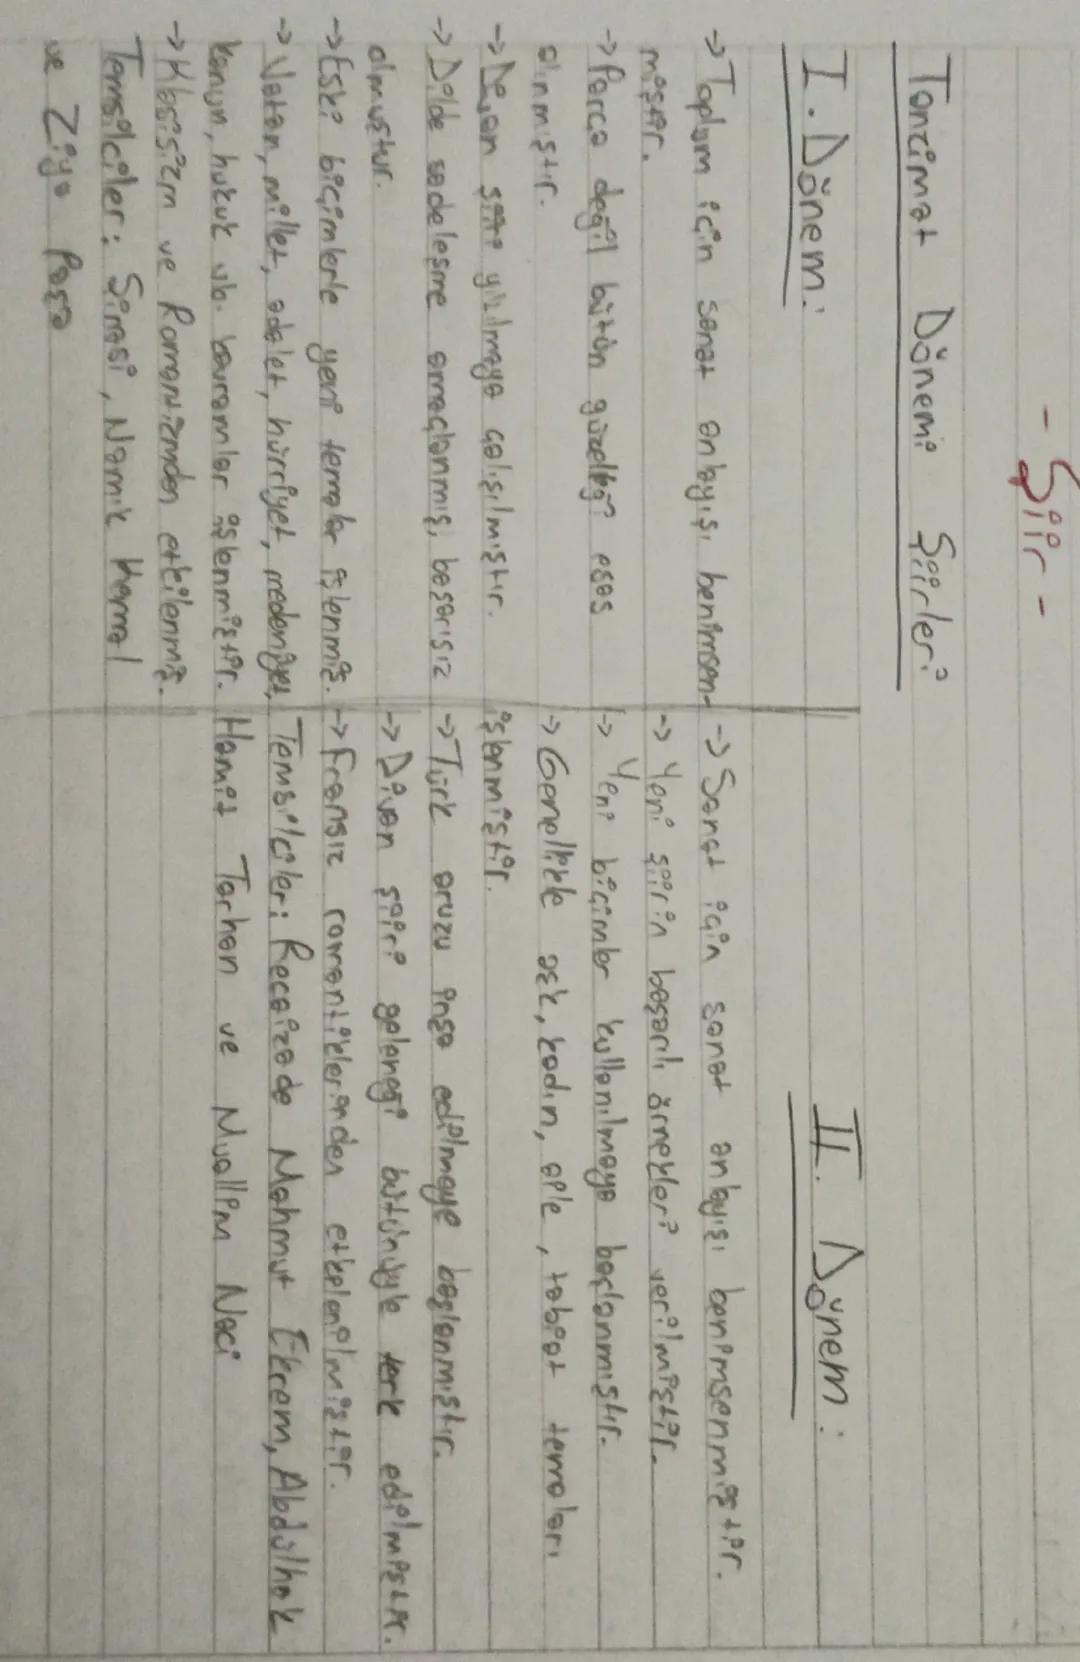 - Şiir -
Tanzimat Dönemi Şiirleri
I. Dönem:
→ Toplum için sanat anlayışı benimsen-
miştir.
→ Parça değil bütün güzelliği esas
alınmıştır.
→ Divan şiiri yıkılmaya çalışılmıştır.
→ Dilde sadeleşme amaçlanmış, başarısız
olmuştur.
→ Eski biçimlerle yeni temalar işlenmiş.
→ Vatan, millet, adalet, hürriyet, medeniyet,
kanun, hukuk vb. kavramlar işlenmiştir.
→ Klasisizm ve Romantizmden etkilenmiş.
Temsilciler: Şinasi, Namık Kemal
ve Ziya Paşa
II. Dönem:
→ Sanat için sanat anlayışı benimsenmiştir.
→ Yeni şiirin başarılı örnekleri verilmiştir.
→ Yeni biçimler kullanılmaya başlanmıştır.
→ Genellikle aşk, kadın, aile, tabiat temaları
işlenmiştir.
→ Türk aruzu inşa edilmeye başlanmıştır.
→ Divan şiiri geleneği bütünüyle terk edilmiştir.
→ Fransız romantiklerinden etkilenilmiştir.
Temsilciler: Recaizade Mahmut Ekrem, Abdülhak
Hamit Tarhan ve Muallim Naci